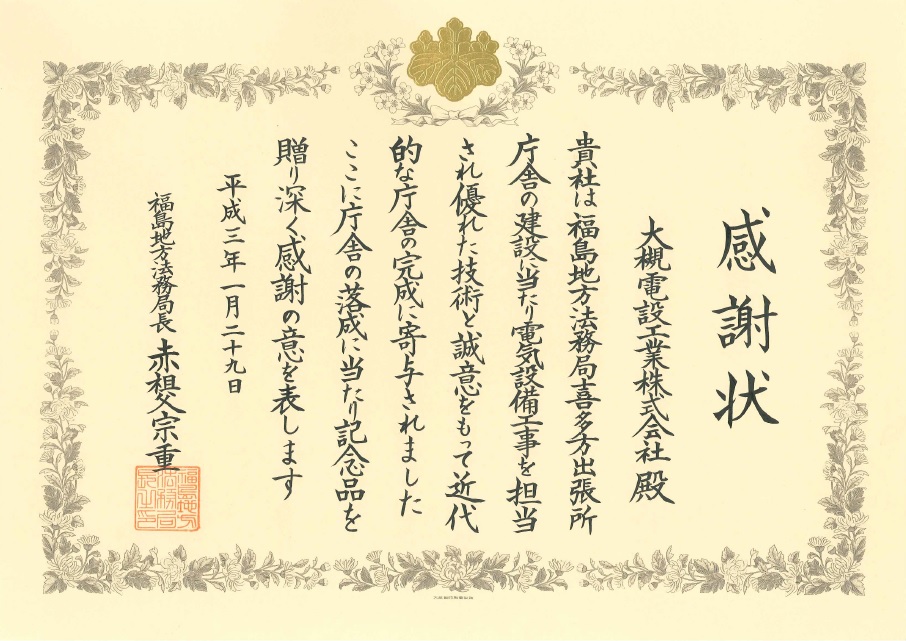 感謝状
大槻電設工業株式会社 殿
貴社は福島地方法務局喜多方出張所
庁舎の建設に当たり電気設備工事を担当
され優れた技術と誠意をもって近代
的な庁舎の完成に寄与されました
ここに庁舎の落成に当たり記念品を
贈り深く感謝の意を表します
平成三年一月二十九日
福島地方法務局長 赤祖父宗重